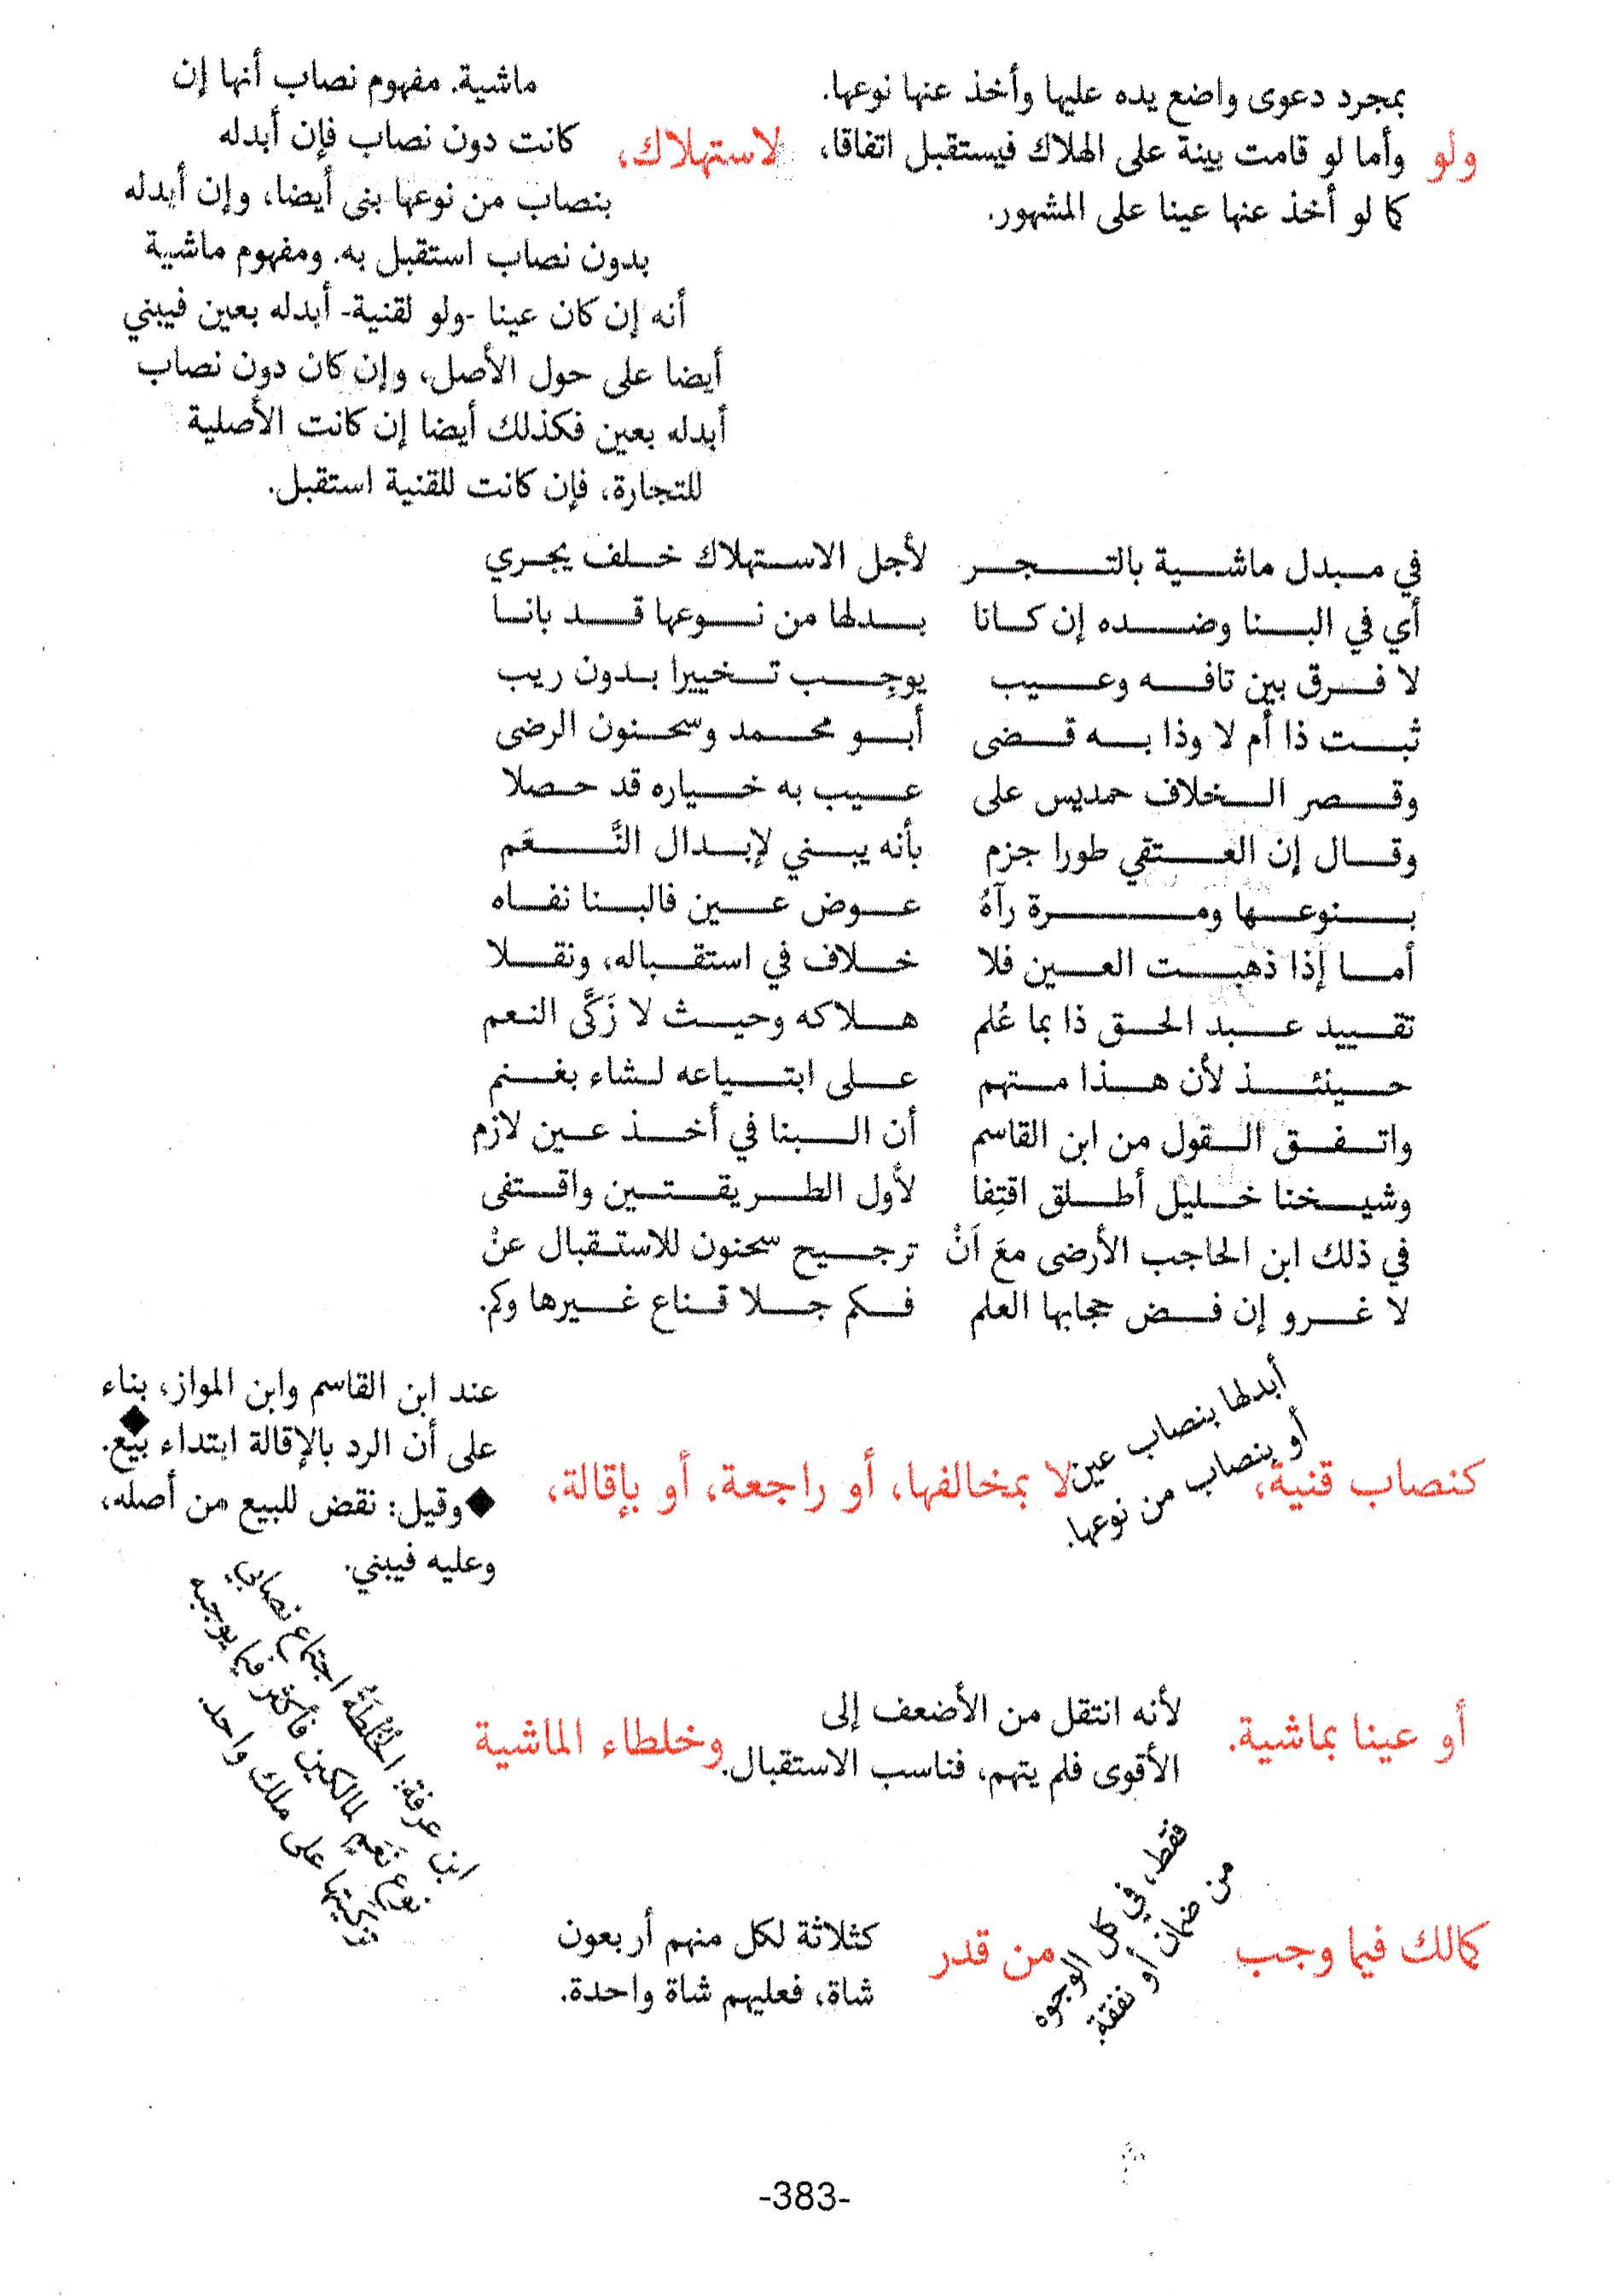 ولو
بمجرد دعوى واضع يده عليها وأخذ عنها نوعها.
وأما لو قامت بينة على الهلاك فيستقبل اتفاقا،
كما لو أخذ عنها عينا على المشهور.
لاستهلاك،
ماشية. مفهوم نصاب أنها إن
كانت دون نصاب فإن أبدله
بنصاب من نوعها بنى أيضا، وإن أبدله
بدون نصاب استقبل به. ومفهوم ماشية
أنه إن كان عينا -ولو لقنية- أبدله بعين فيبني
أيضا على حول الأصل، وإن كان دون نصاب
أبدله بعين فكذلك أيضا إن كانت الأصلية
للتجارة، فإن كانت للقنية استقبل.
في مبدل ماشية بالتجر لأجل الاستهلاك خلف يجري
أي في البنا وضده إن كانا بدلها من نوعها قد بانا
لا فرق بين تافه وعيب يوجِب تخييرا بدون ريب
ثبت ذا أم لا وذا به قضى أبو محمد وسحنون الرضى
وقصر الخلاف حمديس على عيب به خياره قد حصلا
وقال إن العتقي طورا جزم بأنه يبني لإبدال النَّعَم
بنوعها ومرة رآهُ عوض عين فالبنا نفاه
أما إذا ذهبت العين فلا خلاف في استقباله، ونقلا
تقييد عبد الحق ذا بما عُلم هلاكه وحيث لا زَكَّى النعم
حينئذ لأن هذا متهم على ابتياعه لشاء بغنم
واتفق القول من ابن القاسم أن البنا في أخذ عين لازم
وشيخنا خليل أطلق اقتِفا لأول الطريقتين واقتفى
في ذلك ابن الحاجب الأرضى معَ اَنْ ترجيح سحنون للاستقبال عنْ
لا غرو إن فض حجابها العلم فكم جلا قناع غيرها وكم.
كنصاب قنية،
أبدلها بنصاب عين
أو بنصاب من نوعها.
لا بمخالفها، أو راجعة، أو بإقالة،
عند ابن القاسم وابن المواز، بناء
على أن الرد بالإقالة ابتداء بيع.
◆وقيل: نقض للبيع من أصله،
وعليه فيبني.
أو عينا بماشية.
لأنه انتقل من الأضعف إلى
الأقوى فلم يتهم، فناسب الاستقبال.
وخلطاء الماشية
ابن عرفة: الخُلْطَةُ اجتماع نصابي
نوع نَعَمٍ لمالكين فأكثر فيما يوجبه
تزكيتها على ملك واحد.
كمالك فيما وجب
فقط، في كل الوجوه
من ضمان أو نفقة.
من قدر
كثلاثة لكل منهم أربعون
شاة، فعليهم شاة واحدة.
-383-